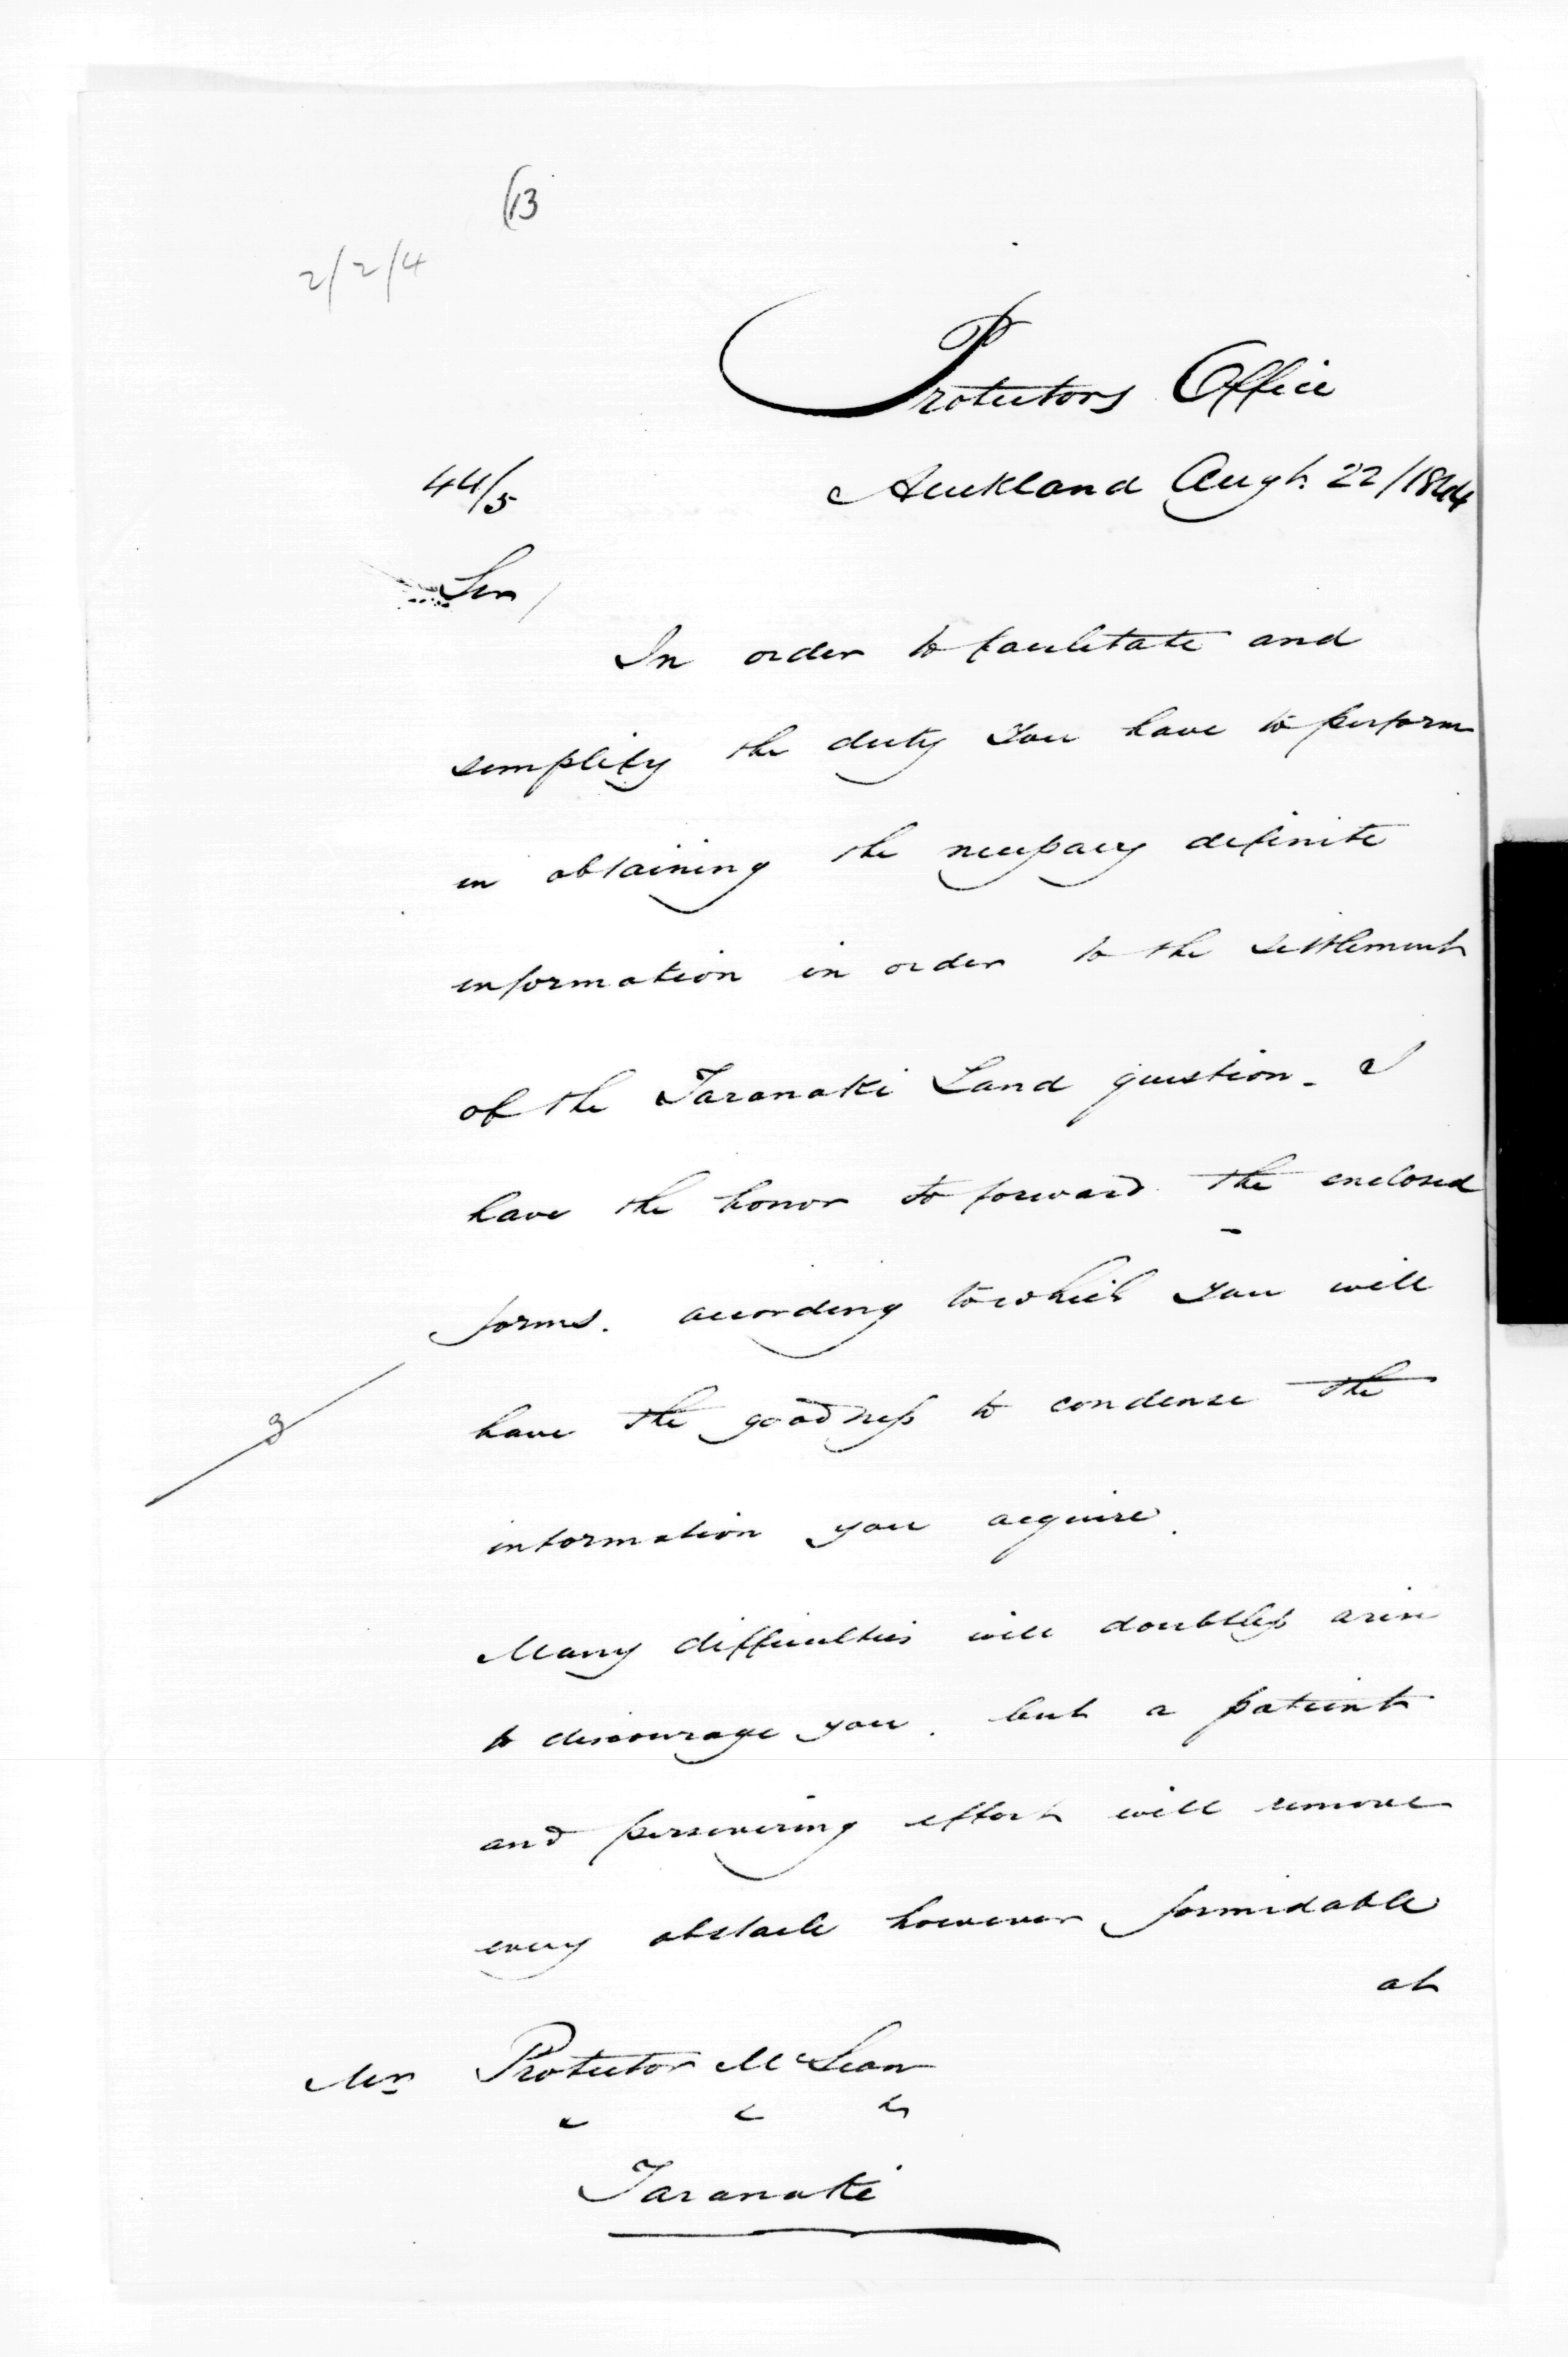 (13
2/2/4
Protectors Office
44/5 Auckland Augt. 22/1844
Sir/
In order to facilitate and
simplify the duty you have to perform
in obtaining the necessary definite
information in order to the settlement
of the Taranaki Land question - I
have the honor to forward the enclosed
forms. according to which you will
have the goodness to condense the
3
information you acquire.
Many difficulties will doubtless arise
to discourage you. but a patient
and persevering effort will remove
every obstacle however formidable
at
Mr Protector McLean
" " "
Taranaki